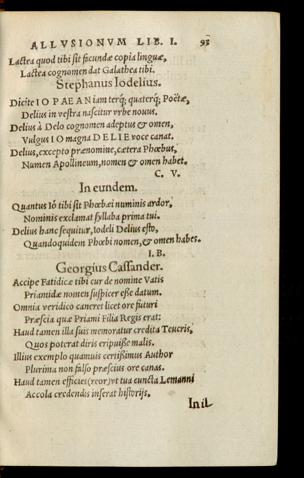 ALLVSIONVM LIB. I. 93
Lactea quod tibi sit fæcundæ copia linguæ,
Lactea cognomen dat Galathea tibi.
Stephanus Iodelius.
Dicite I O P AE A N iam terq; quaterq; Poëtæ,
Delius in vestra nascitur vrbe nouus.
Delius à Delo cognomen adeptus & omen,
Vulgus I O magna D E L I E voce canat.
Delius, excepto prænomine, cætera Phœbus,
Numen Apollineum, nomen & omen habet.
C. V.
In eundem.
Quantus Iô tibi sit Phœbæi numinis ardor,
Nominis exclamat syllaba prima tui.
Delius hanc sequitur, Iodeli Delius esto,
Quandoquidem Phœbi nomen, & omen habes.
I. B.
Georgius Cassander.
Accipe Fatidicæ tibi cur de nomine Vatis
Priamidæ nomen suspicer esse datum.
Omnia veridico caneret licet ore futuri
Præscia quæ Priami Filia Regis erat:
Haud tamen illa suis memoratur credita Teucris,
Quos poterat diris eripuisse malis.
Illius exemplo quamuis certissimus Author
Plurima non falso præscius ore canas.
Haud tamen efficies (reor) vt tua cuncta Lemanni
Accola credendis inserat historijs.
In il